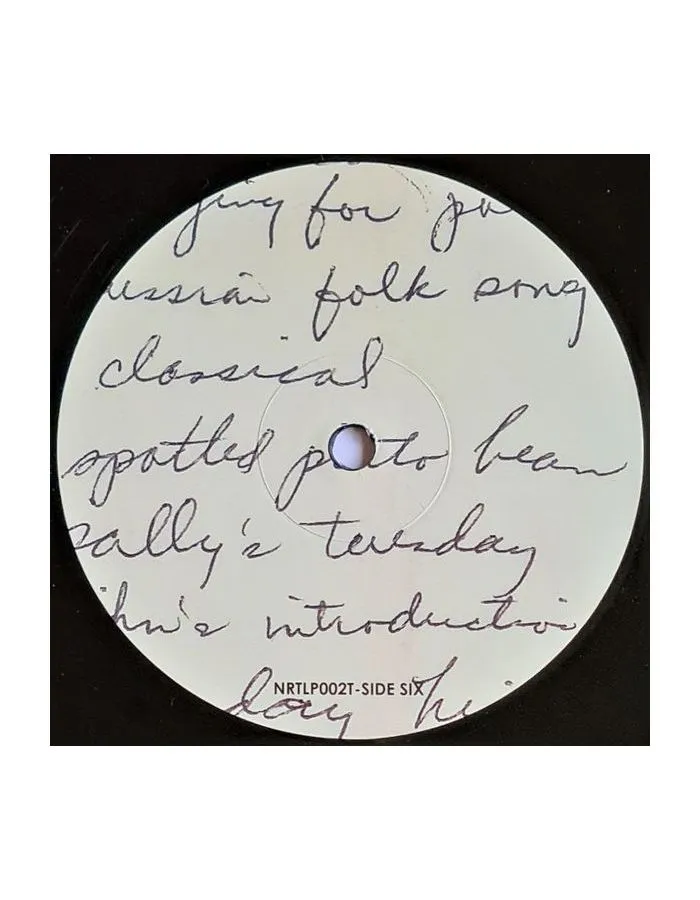 ging for pa
ussian folk song
classical
spotted pinto bean
sally's tuesday
ohn's introduction
NRTLP002T-SIDE SIX
day hi